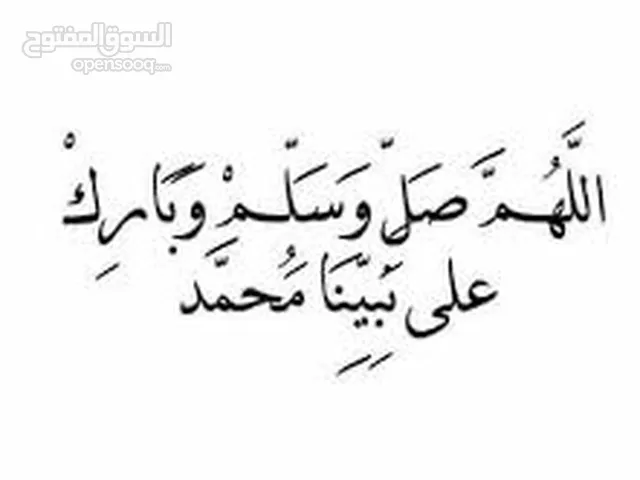 السوق المفتوح
opensooq.com
اللَّهُمَّ صَلِّ وَسَلِّمْ وَبَارِكْ
على نَبِيِّنَا مُحمَّد